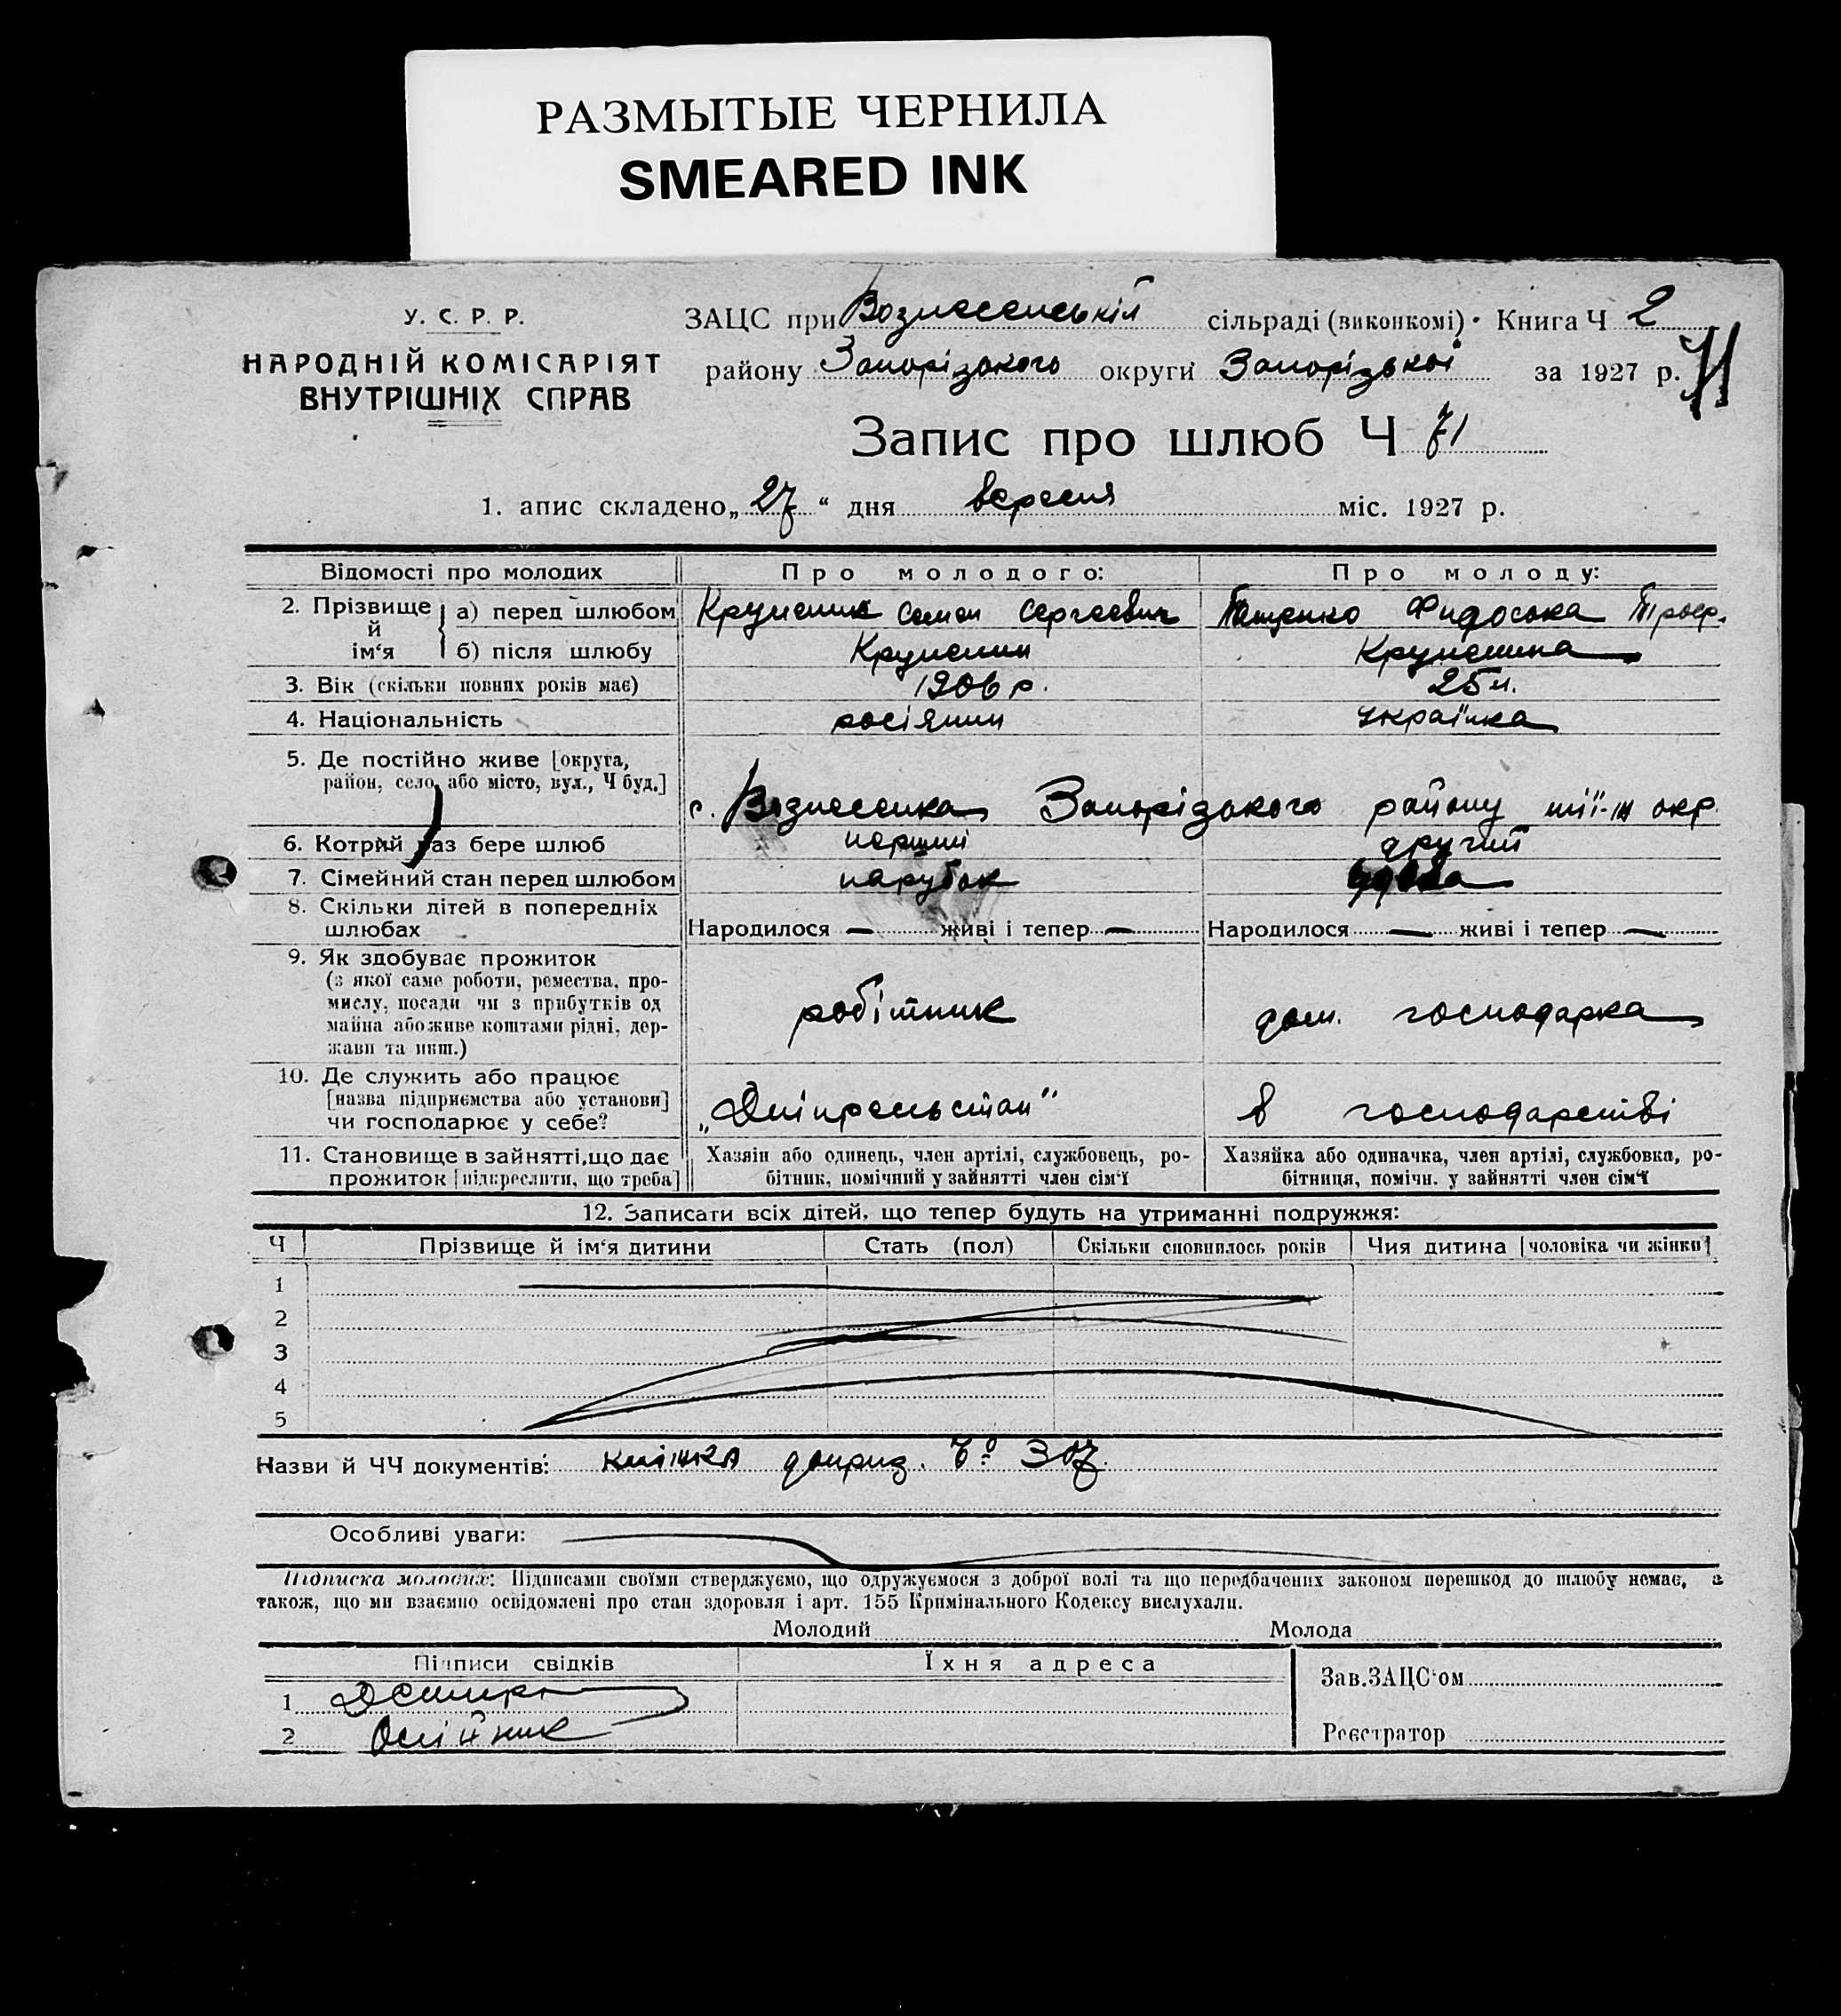 РАЗМЫТЫЕ ЧЕРНИЛА
SMEARED INK
У. С. Р. Р.
НАРОДНІЙ КОМІСАРІЯТ
ВНУТРІШНІХ СПРАВ
ЗАЦС при Вознесенській сільраді (виконкомі) Книга Ч 2
району Запорізького округи Запорізької за 1927 р.
71
Запис про шлюб Ч 71
1. апис складено „27“ дня вересня міс. 1927 р.
Відомості про молодих Про молодого: Про молоду:
2. Прізвище й ім‘я а) перед шлюбом Семен Сергеевич Фидоська Троф.
б) після шлюбу
3. Вік (скільки повних років має) 1906 р. 25 л.
4. Національність росіянин українка
5. Де постійно живе [округа,
район, село, або місто, вул., Ч буд.]
с. Вознесенка Запорізького району тії-ж окр.
6. Котрий раз бере шлюб перший другий
7. Сімейний стан перед шлюбом парубок удова
8. Скільки дітей в попередніх
шлюбах Народилося — живі і тепер — Народилося — живі і тепер —
9. Як здобуває прожиток
(з якої саме роботи, ремества, про-
мислу, посади чи з прибутків од
майна або живе коштами рідні, дер-
жави та инш.)
робітник дом. господарка
10. Де служить або працює
[назва підприємства або установи]
чи господарює у себе?
„Дніпрельстан“ в господарстві
11. Становище в зайнятті, що дає
прожиток [підкреслити, що треба]
Хазяїн або одинець, член артілі, службовець, ро-
бітник, помічний у зайнятті член сім‘ї
Хазяйка або одиначка, член артілі, службовка, ро-
бітниця, помічн. у зайнятті член сім‘ї
12. Записати всіх дітей, що тепер будуть на утриманні подружжя:
Ч Прізвище й ім‘я дитини Стать (пол) Скільки сповнилось років Чия дитина [чоловіка чи жінки]
1
2
3
4
5
Назви й ЧЧ документів: книжка доприз. 307.
Особливі уваги:
Підписка молодих: Підписами своїми стверджуємо, що одружуємося з доброї волі та що передбачених законом перешкод до шлюбу немає, а
також, що ми взаємно освідомлені про стан здоровля і арт. 155 Кримінального Кодексу вислухали.
Молодий Молода
Підписи свідків Їхня адреса
1
2 Олійник
Зав. ЗАЦС‘ом
Реєстратор